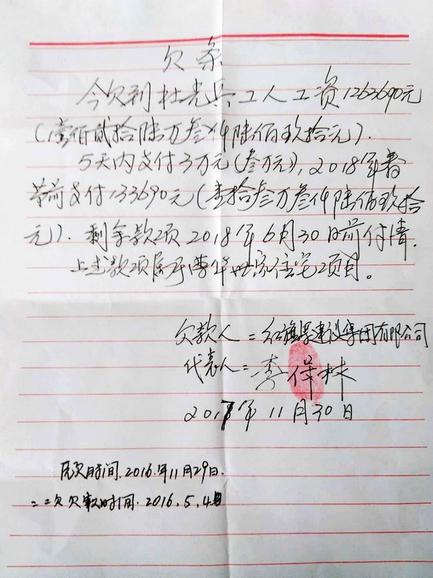 欠条
今欠到杜先兵工人工资1263690元
(壹佰贰拾陆万叁仟陆佰玖拾元).
5天内支付3万元(叁万元), 2018年春
节前支付133690元(壹拾叁万叁仟陆佰玖拾
元). 剩余款项2018年6月30日前付清.
上述款项属承 华世家住宅项目。
欠款人= 红旗渠建设集团有限公司
代表人= 李保林
2017年11月30日
欠时间.2016.年11月29日.
二次欠款时间.2016.5.4